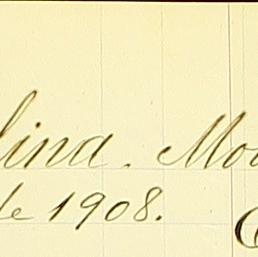 lina. Mo
de 1908.